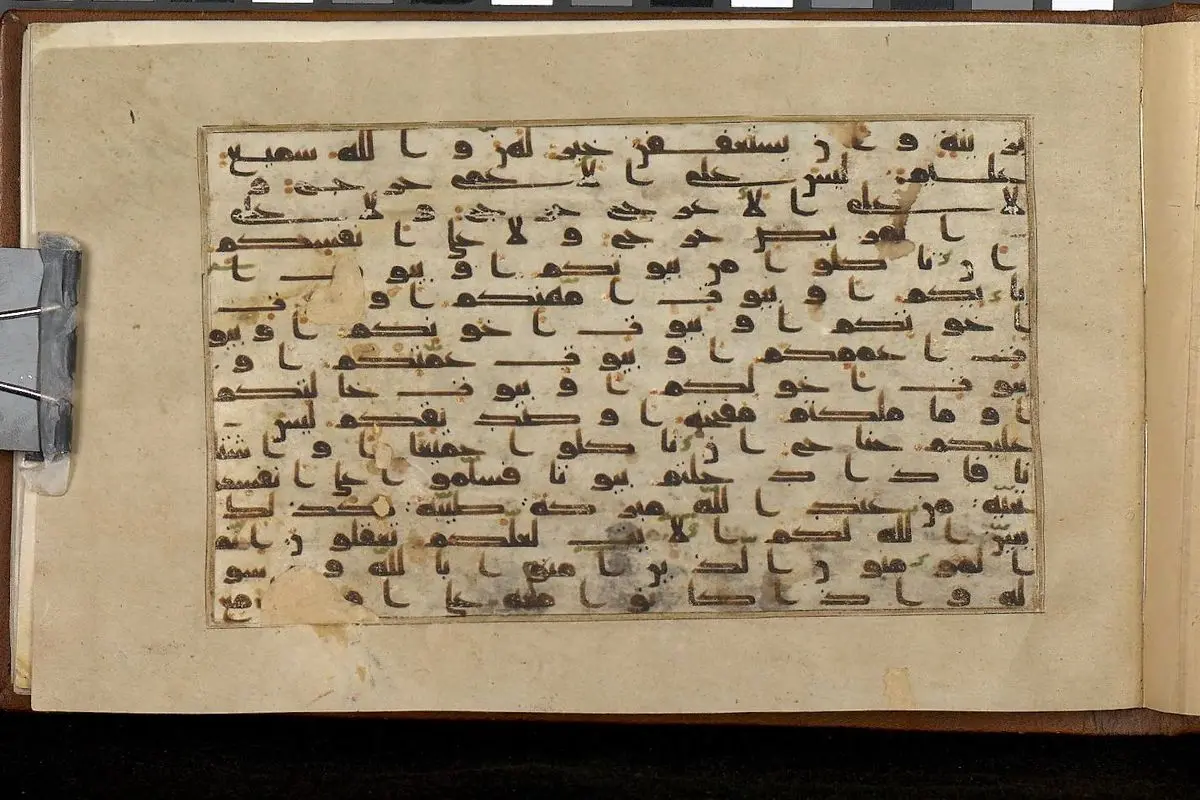 بزينة وأن يستعففن خير لهن والله سميع
عليم ليس على الاعمى حرج و
لا على الاعرج حرج ولا على
المريض حرج ولا على انفسكم
ان تاكلوا من بيوتكم او بيوت ا
بائكم او بيوت امهتكم او بيوت
اخونكم او بيوت اخوتكم او بيو
ت اعممكم او بيوت عمتكم او
بيوت اخولكم او بيوت خلتكم
او ما ملكتم مفتحه او صديقكم ليس
عليكم جناح ان تاكلوا جميعا او اشتا
تا فاذا دخلتم بيوتا فسلموا على انفسكم
تحية من عند الله مبركة طيبة كذلك
يبين الله لكم الايت لعلكم تعقلون انما
المومنون الذين امنوا بالله ورسو
له واذا كانوا معه على امر